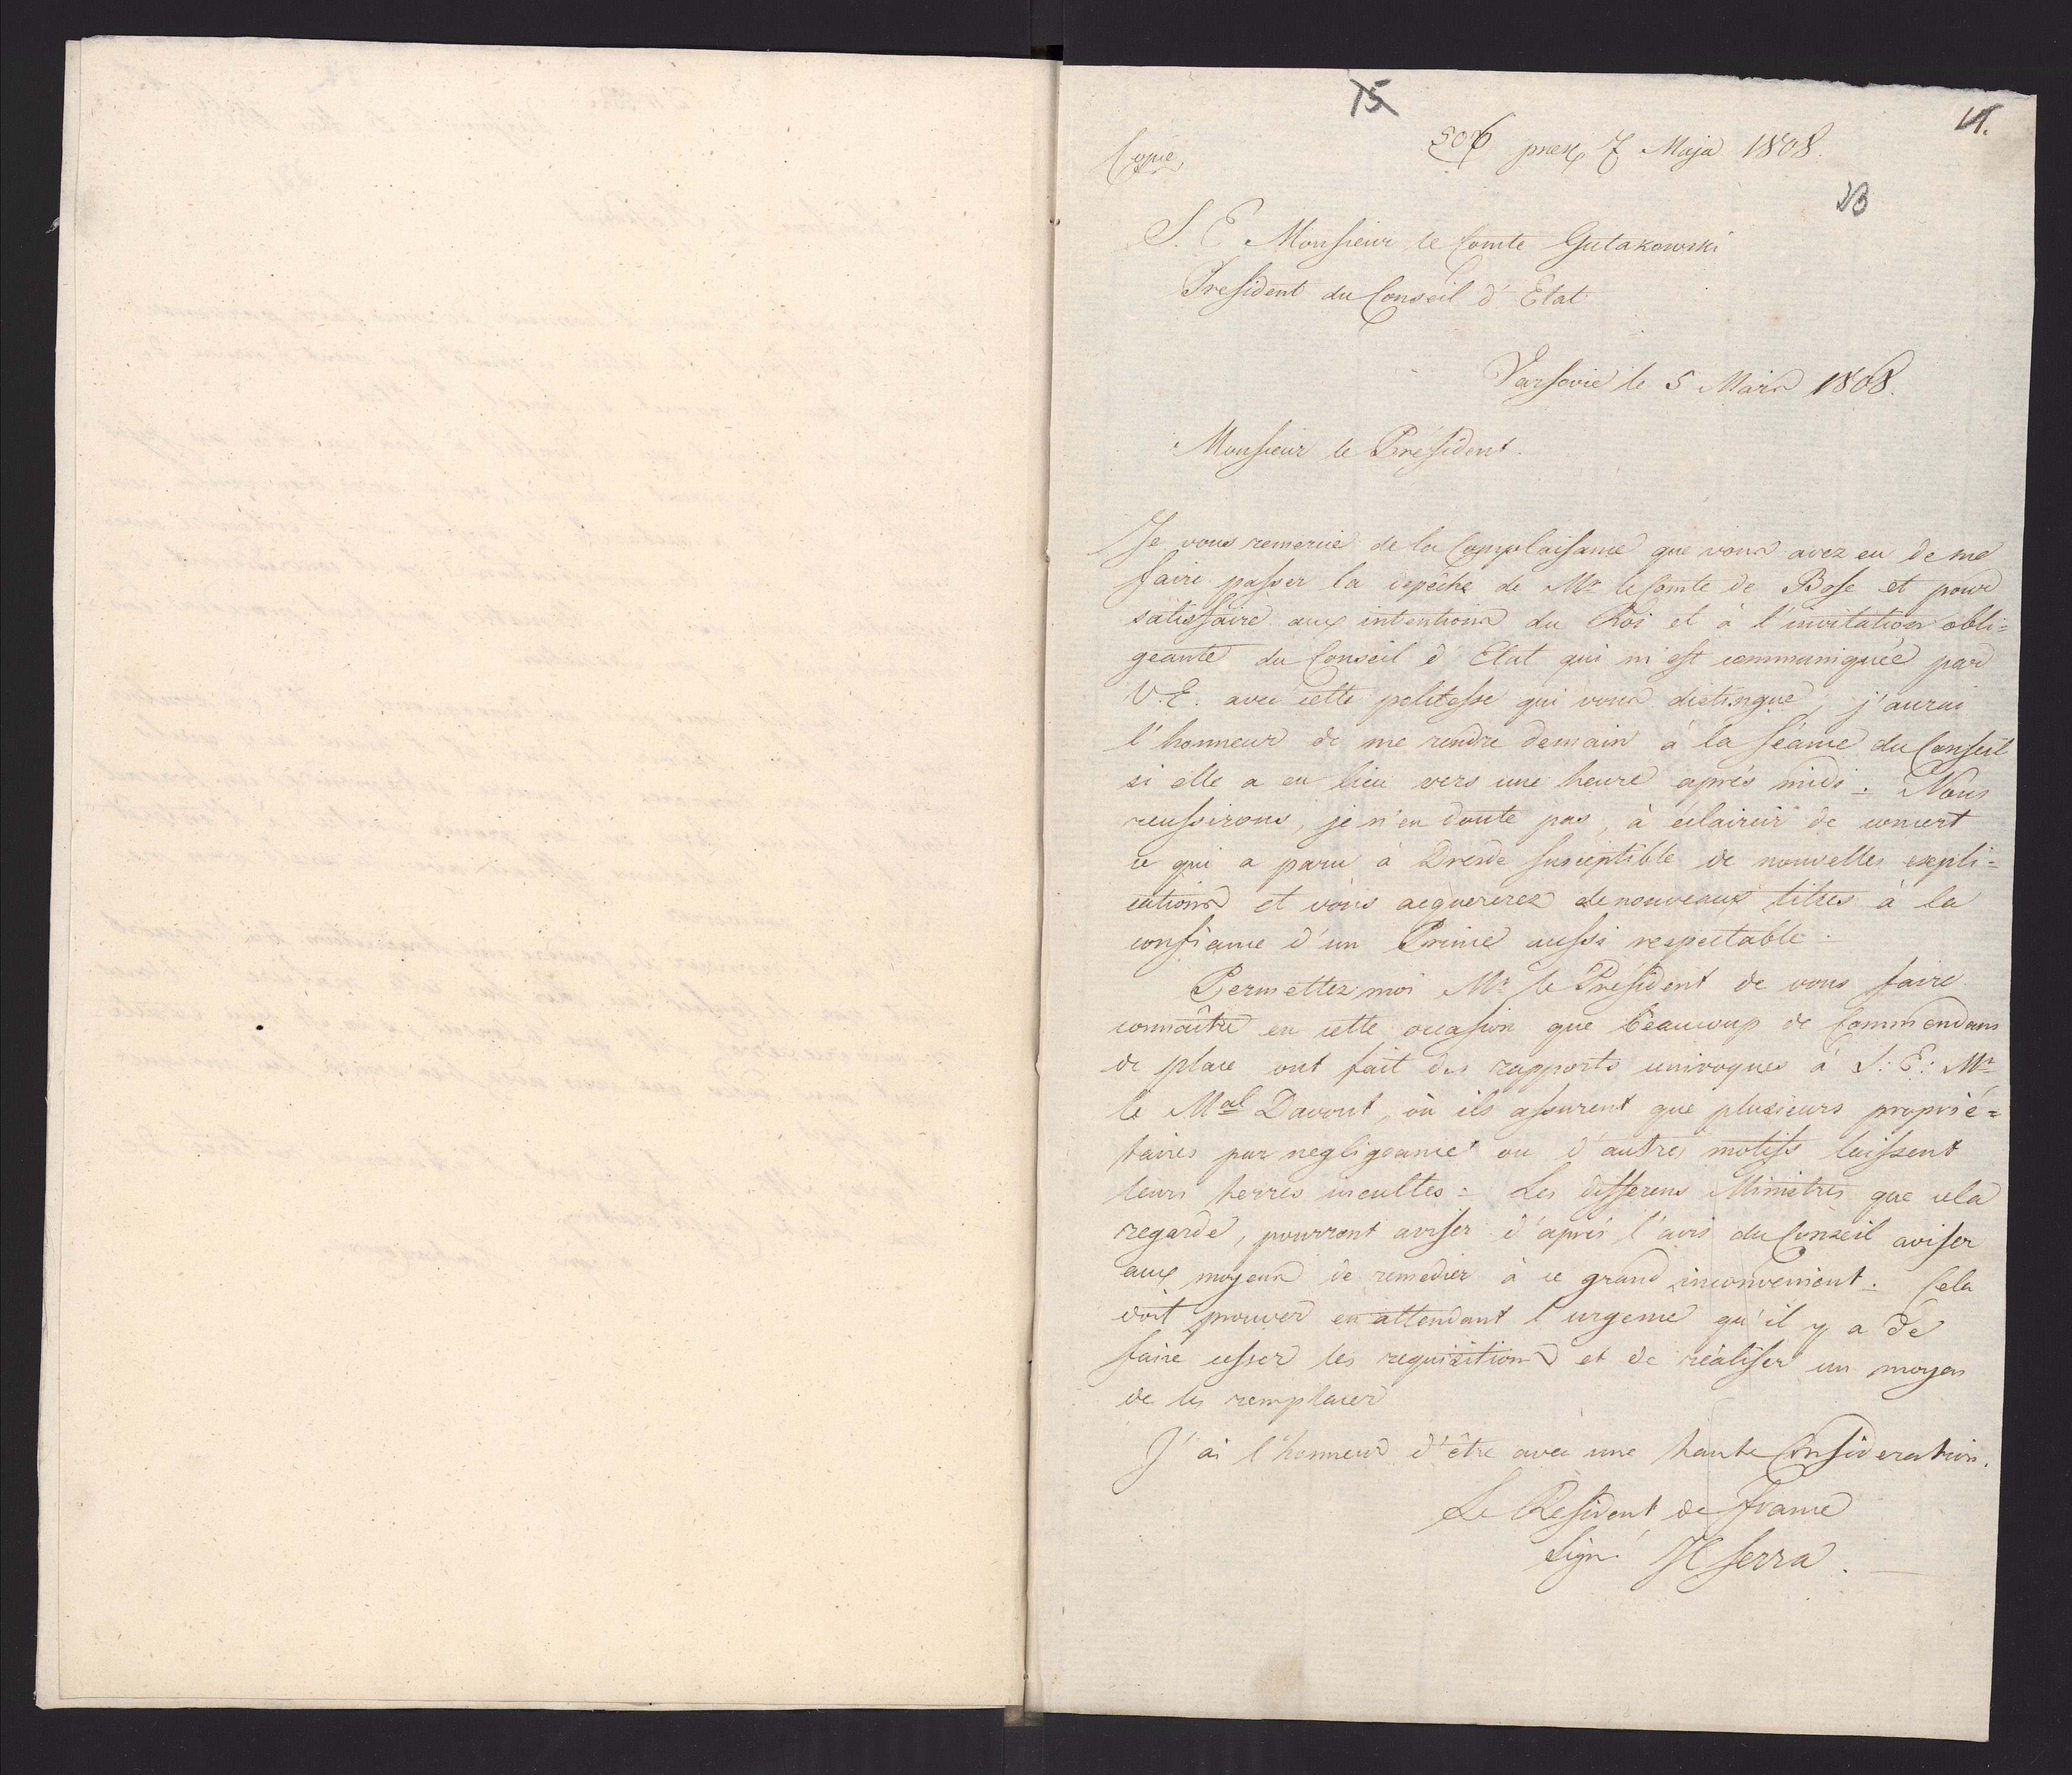 15
11.
Copie,
506 pres 7 Maja 1808.
S. E Monsieur le Comte Gutakowski
President du Conseil d'Etat
Varsovie le 5 Mars 1808.
Monsieur le Président.
Je vous remercie de la Complaisance que vous avez eu de me
faire passer la depêche de Mr le Comte de Bose et pour
satisfaire aux intentions du Roi et à l'invitation obli=
geante du Conseil d'Etat qui m'est communiquée par
V. E. avec cette politesse qui vous distingue, j'aurai
l'honneur de me rendre demain à la séance du Conseil
si elle a eu lieu vers une heure après midi. Nous
reussirons, je n'en doute pas, à eclaircir de concert
ce qui a paru à Dresde susceptible de nouvelles expli=
cations et vous acquererez de nouveaux titres à la
confiance d'un Prince aussi respectable.
Permettez moi Mr le Président de vous faire
connaître en cette occasion que beaucoup de Commendans
de place ont fait des rapports univoques à S: E: Mr
le Mal Davout, où ils assurent que plusieurs proprié=
taires par negligeance ou d'autres motifs laissent
leurs terres incultes = Les differens Ministres que cela
regarde, pourront aviser d'après l'avis du Conseil aviser
aux moyens de remedier à ce grand inconvenient. Cela
doit prouver en attendant l'urgence qu'il y a de
faire cesser les requisitions et de réaliser un moyen
de les remplacer
J'ai l'honneur d'être avec une haute Consideration.
Le Résident de France
Signé Serra.